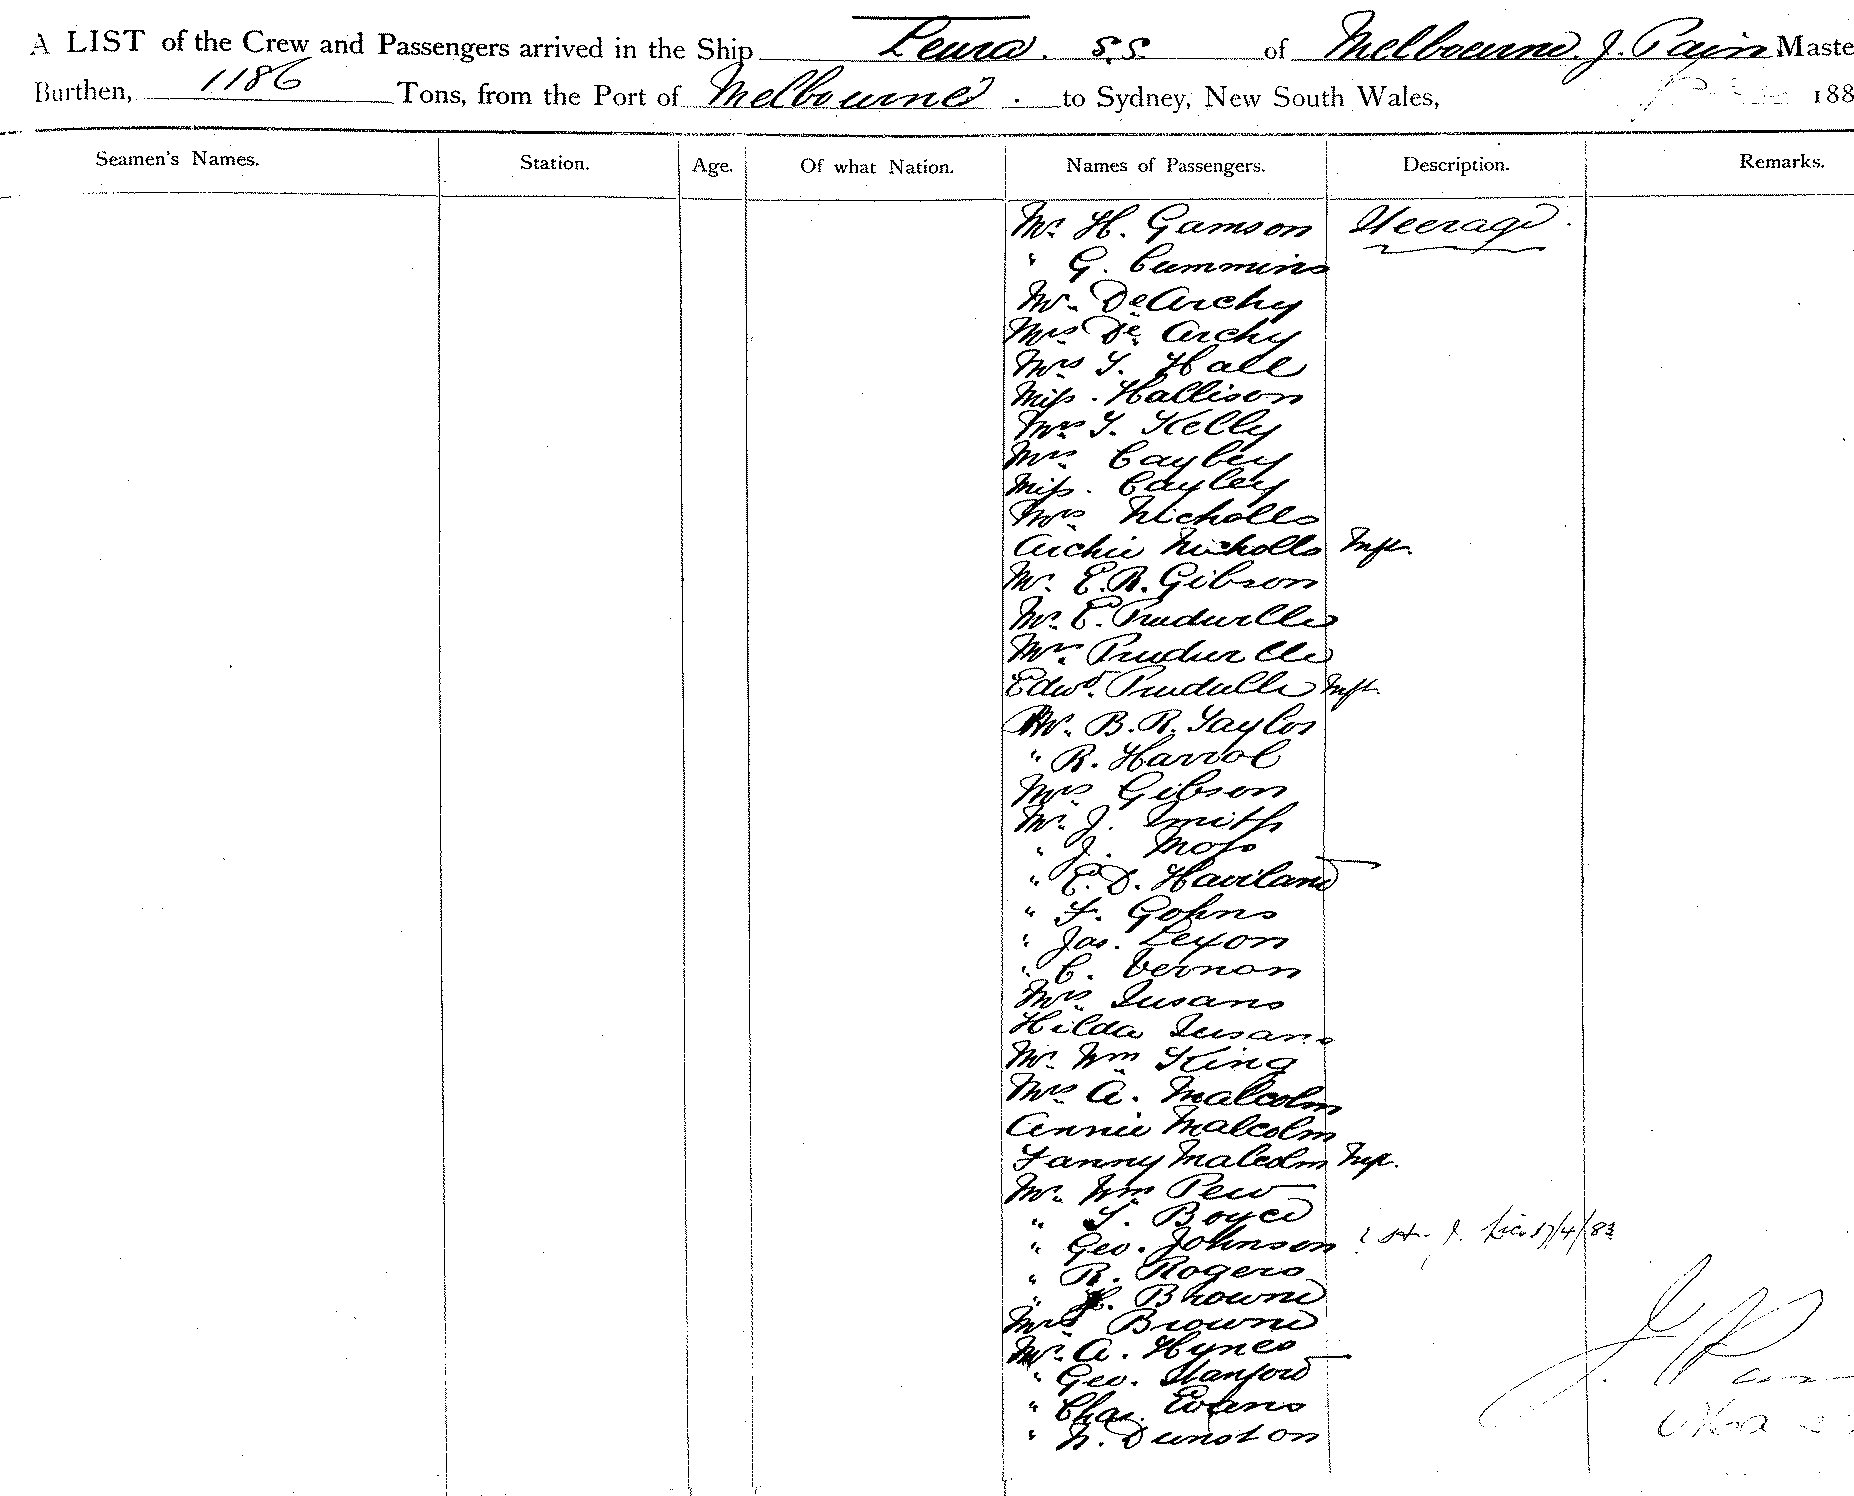 A LIST of the Crew and Passengers arrived in the Ship Leura. S.S. of Melbourne. J. Pain Maste
Burthen, 1186 Tons, from the Port of Melbourne. to Sydney, New South Wales, 188
Seamen's Names. Station. Age. Of what Nation. Names of Passengers. Description. Remarks.
Mr. H. Gamson Steerage.
" G. Cummins
Mr. De Archy
Mrs De Archy
Mrs T. Hall
Miss. Hallison
Mrs T. Kelly
Mrs. Cayley
Miss. Cayley
Mrs Nicholls
Archie Nicholls Inft.
Mr. E. R. Gibson
Mr. E. Prudville
Mrs Prudville
Edwd. Prudville Inft.
Mr. B. R. Taylor
" R. Harrol
Mrs Gibson
Mr. J. Smith
" J. Moss
" E. D. Haviland
" F. Gohns
" Jas. Lexon
" C. Vernon
Mrs. Susans
Hilda Susans
Mr. Wm King
Mrs A. Malcolm
Annie Malcolm
Fanny Malcolm Inf.
Mr. Wm Pew
" T. Boyce
" Geo. Johnson /4/83
" R. Rogers
" Browne
Mrs Browne
Mr. A. Hynes
" Geo. Stanford
" Chas. Evans
" N. Dunston
J. Pain